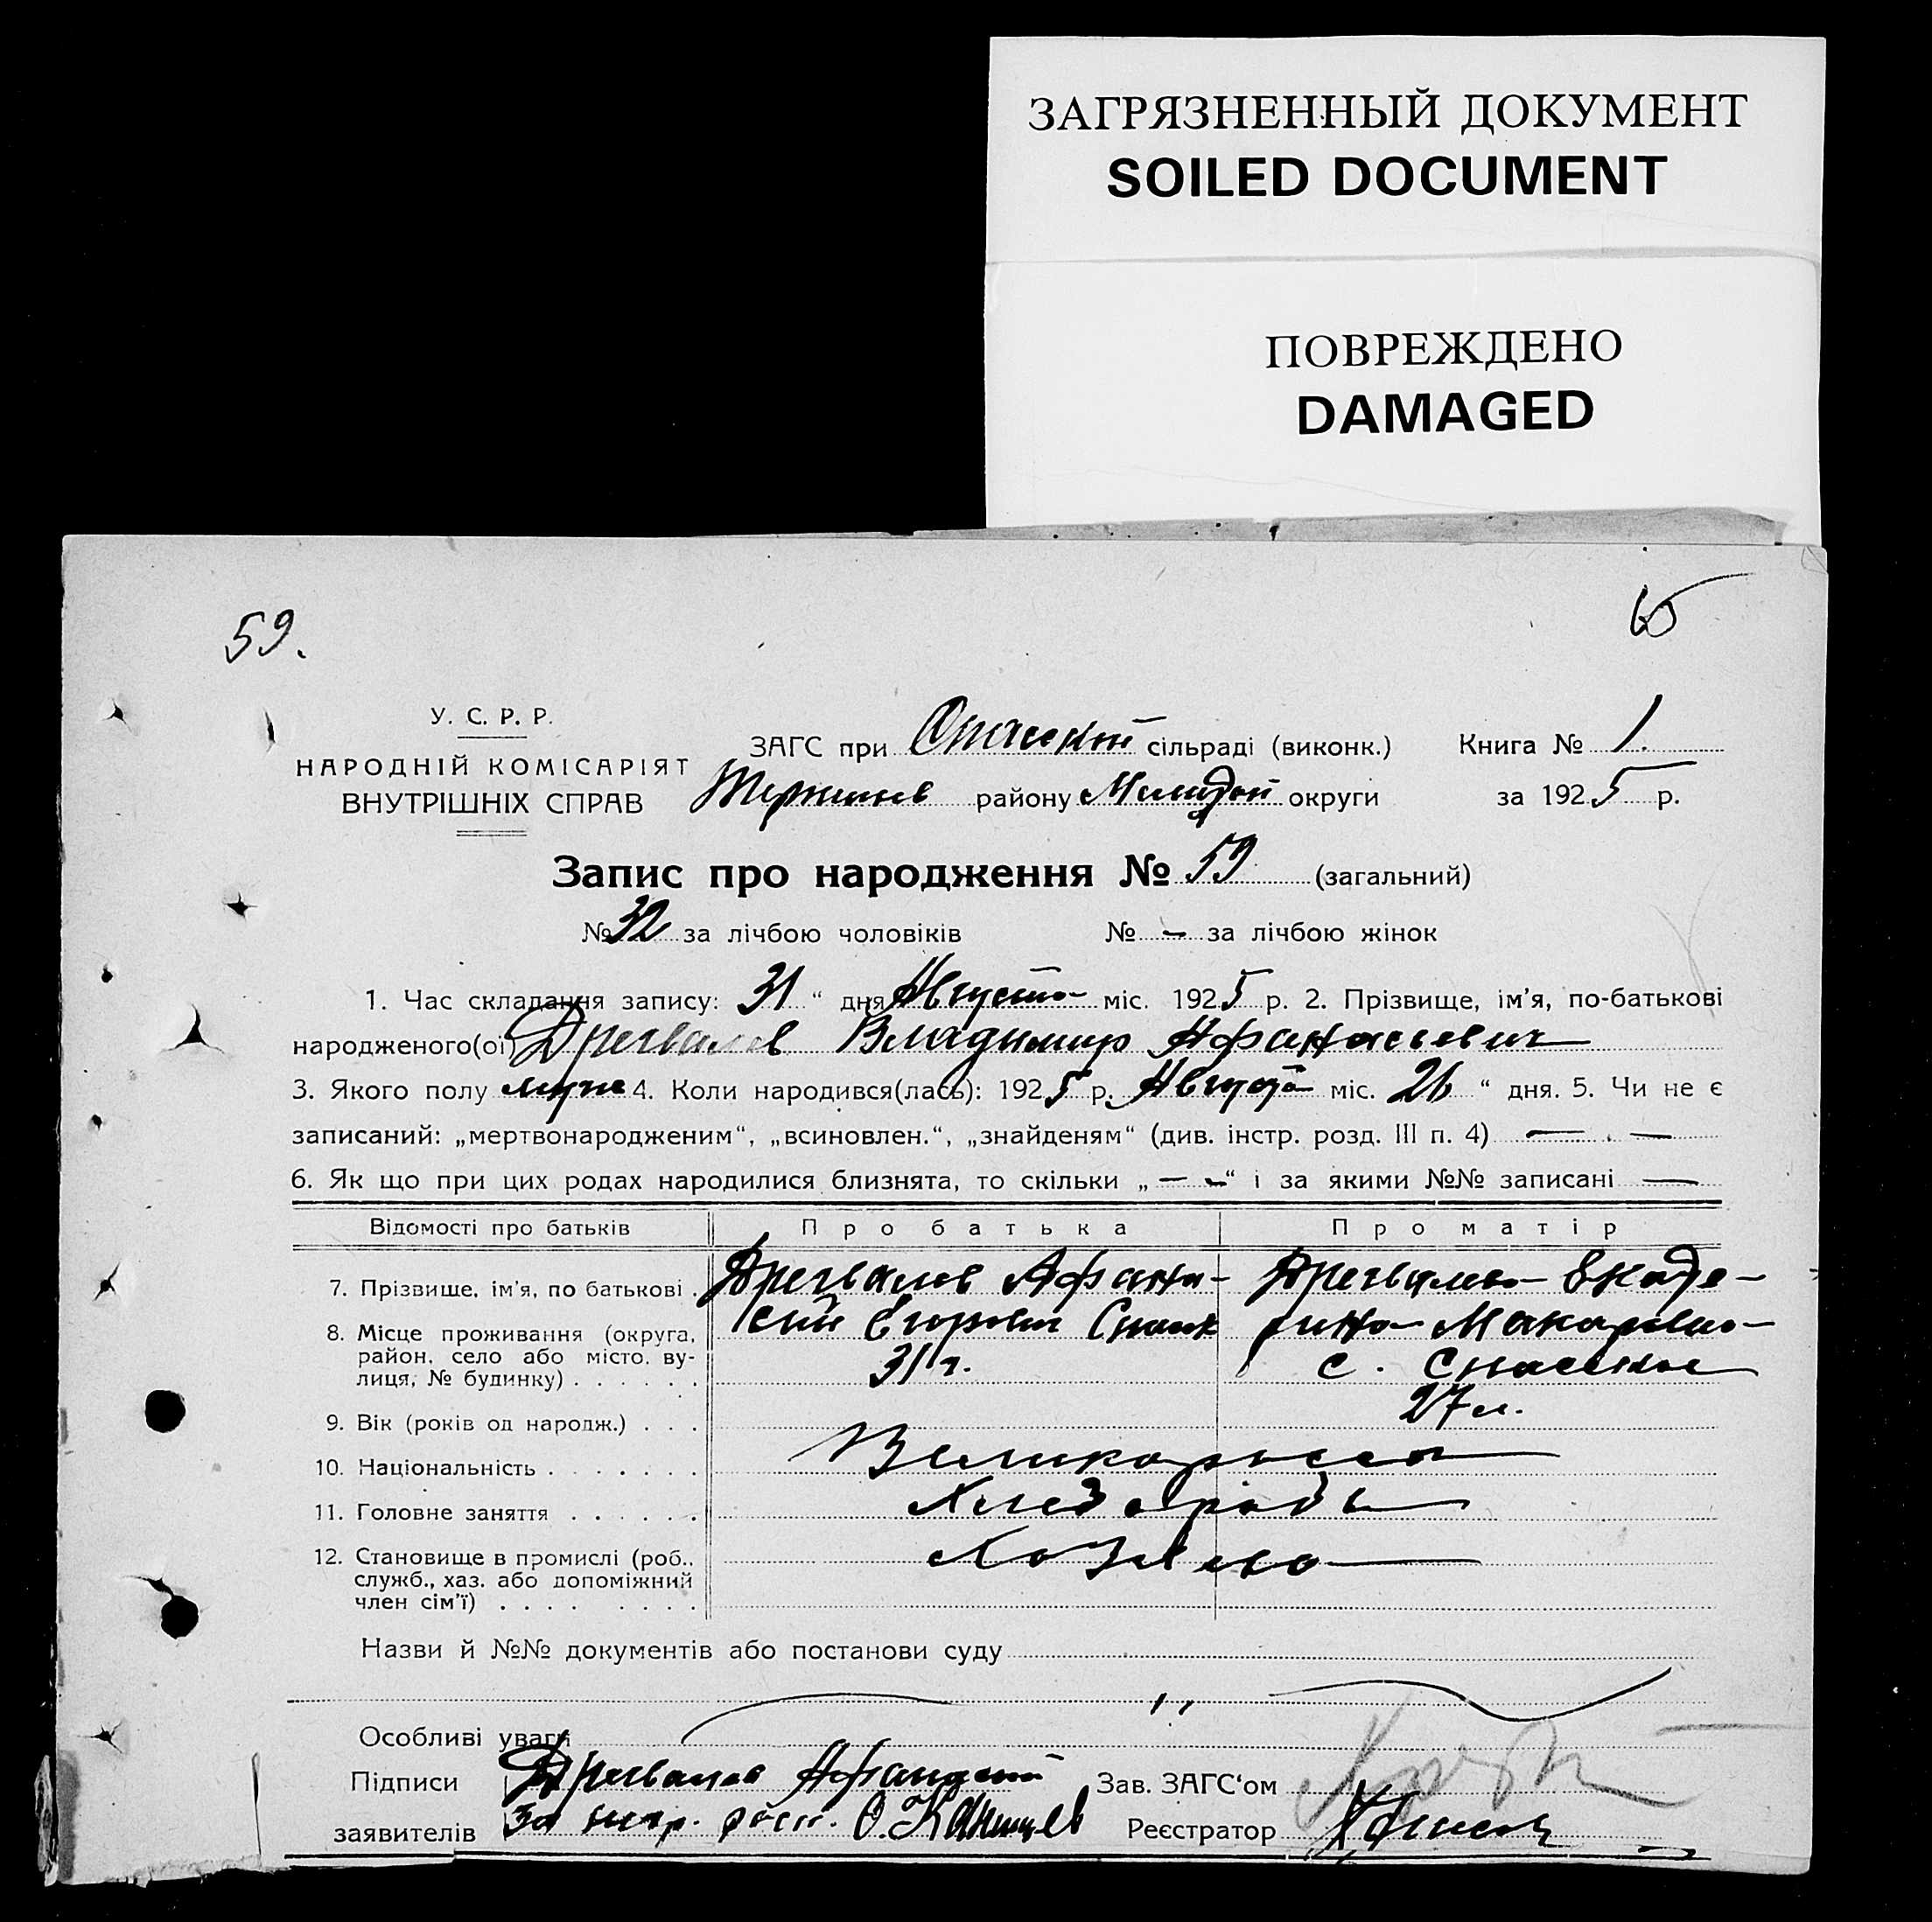 ЗАГРЯЗНЕННЫЙ ДОКУМЕНТ
SOILED DOCUMENT
ПОВРЕЖДЕНО
DAMAGED
59.
У. С. Р. Р.
НАРОДНІЙ КОМІСАРІЯТ
ВНУТРІШНІХ СПРАВ
ЗАГС при Спасской сільраді (виконк.) Книга № 1.
району округи за 1925 р.
Запис про народження № 59 (загальний)
№ 32 за лічбою чоловіків № – за лічбою жінок
1. Час складання запису: 31 “ дня Августа міс. 1925 р. 2. Прізвище, ім'я, по-батькові
народженого(ої) Дрегвалев Владимир Афанасьевич
3. Якого полу муж 4. Коли народився(лась): 1925 р. Августа міс. 26 “ дня. 5. Чи не є
записаний: „мертвонародженим“, „всиновлен.“, „знайденям“ (див. інстр. розд. III п. 4) — . —
6. Як що при цих родах народилися близнята, то скільки „— –“ і за якими №№ записані —
Відомості про батьків Про батька Про матір
7. Прізвище, ім'я, по батькові . Дрегвалев Афана- Дрегвалева Екате-
8. Місце проживання (округа, район, село або місто, ву- лиця, № будинку) . . . . . . сий Егорович Спаск рина Макаровна
с. Спасское
9. Вік (років од народж.) . . . 31 г. 27 л.
10. Національність . . . . . . . Великоросса
11. Головне заняття . . . . . . Хлебороб
12. Становище в промислі (роб., служб., хаз. або допоміжний член сім'ї) . . . . . . . . Хозяева
Назви й №№ документів або постанови суду
Особливі уваги
Підписи Дрегвалев Афанасий Зав. ЗАГС‘ом
заявителів За расп. О. Реєстратор